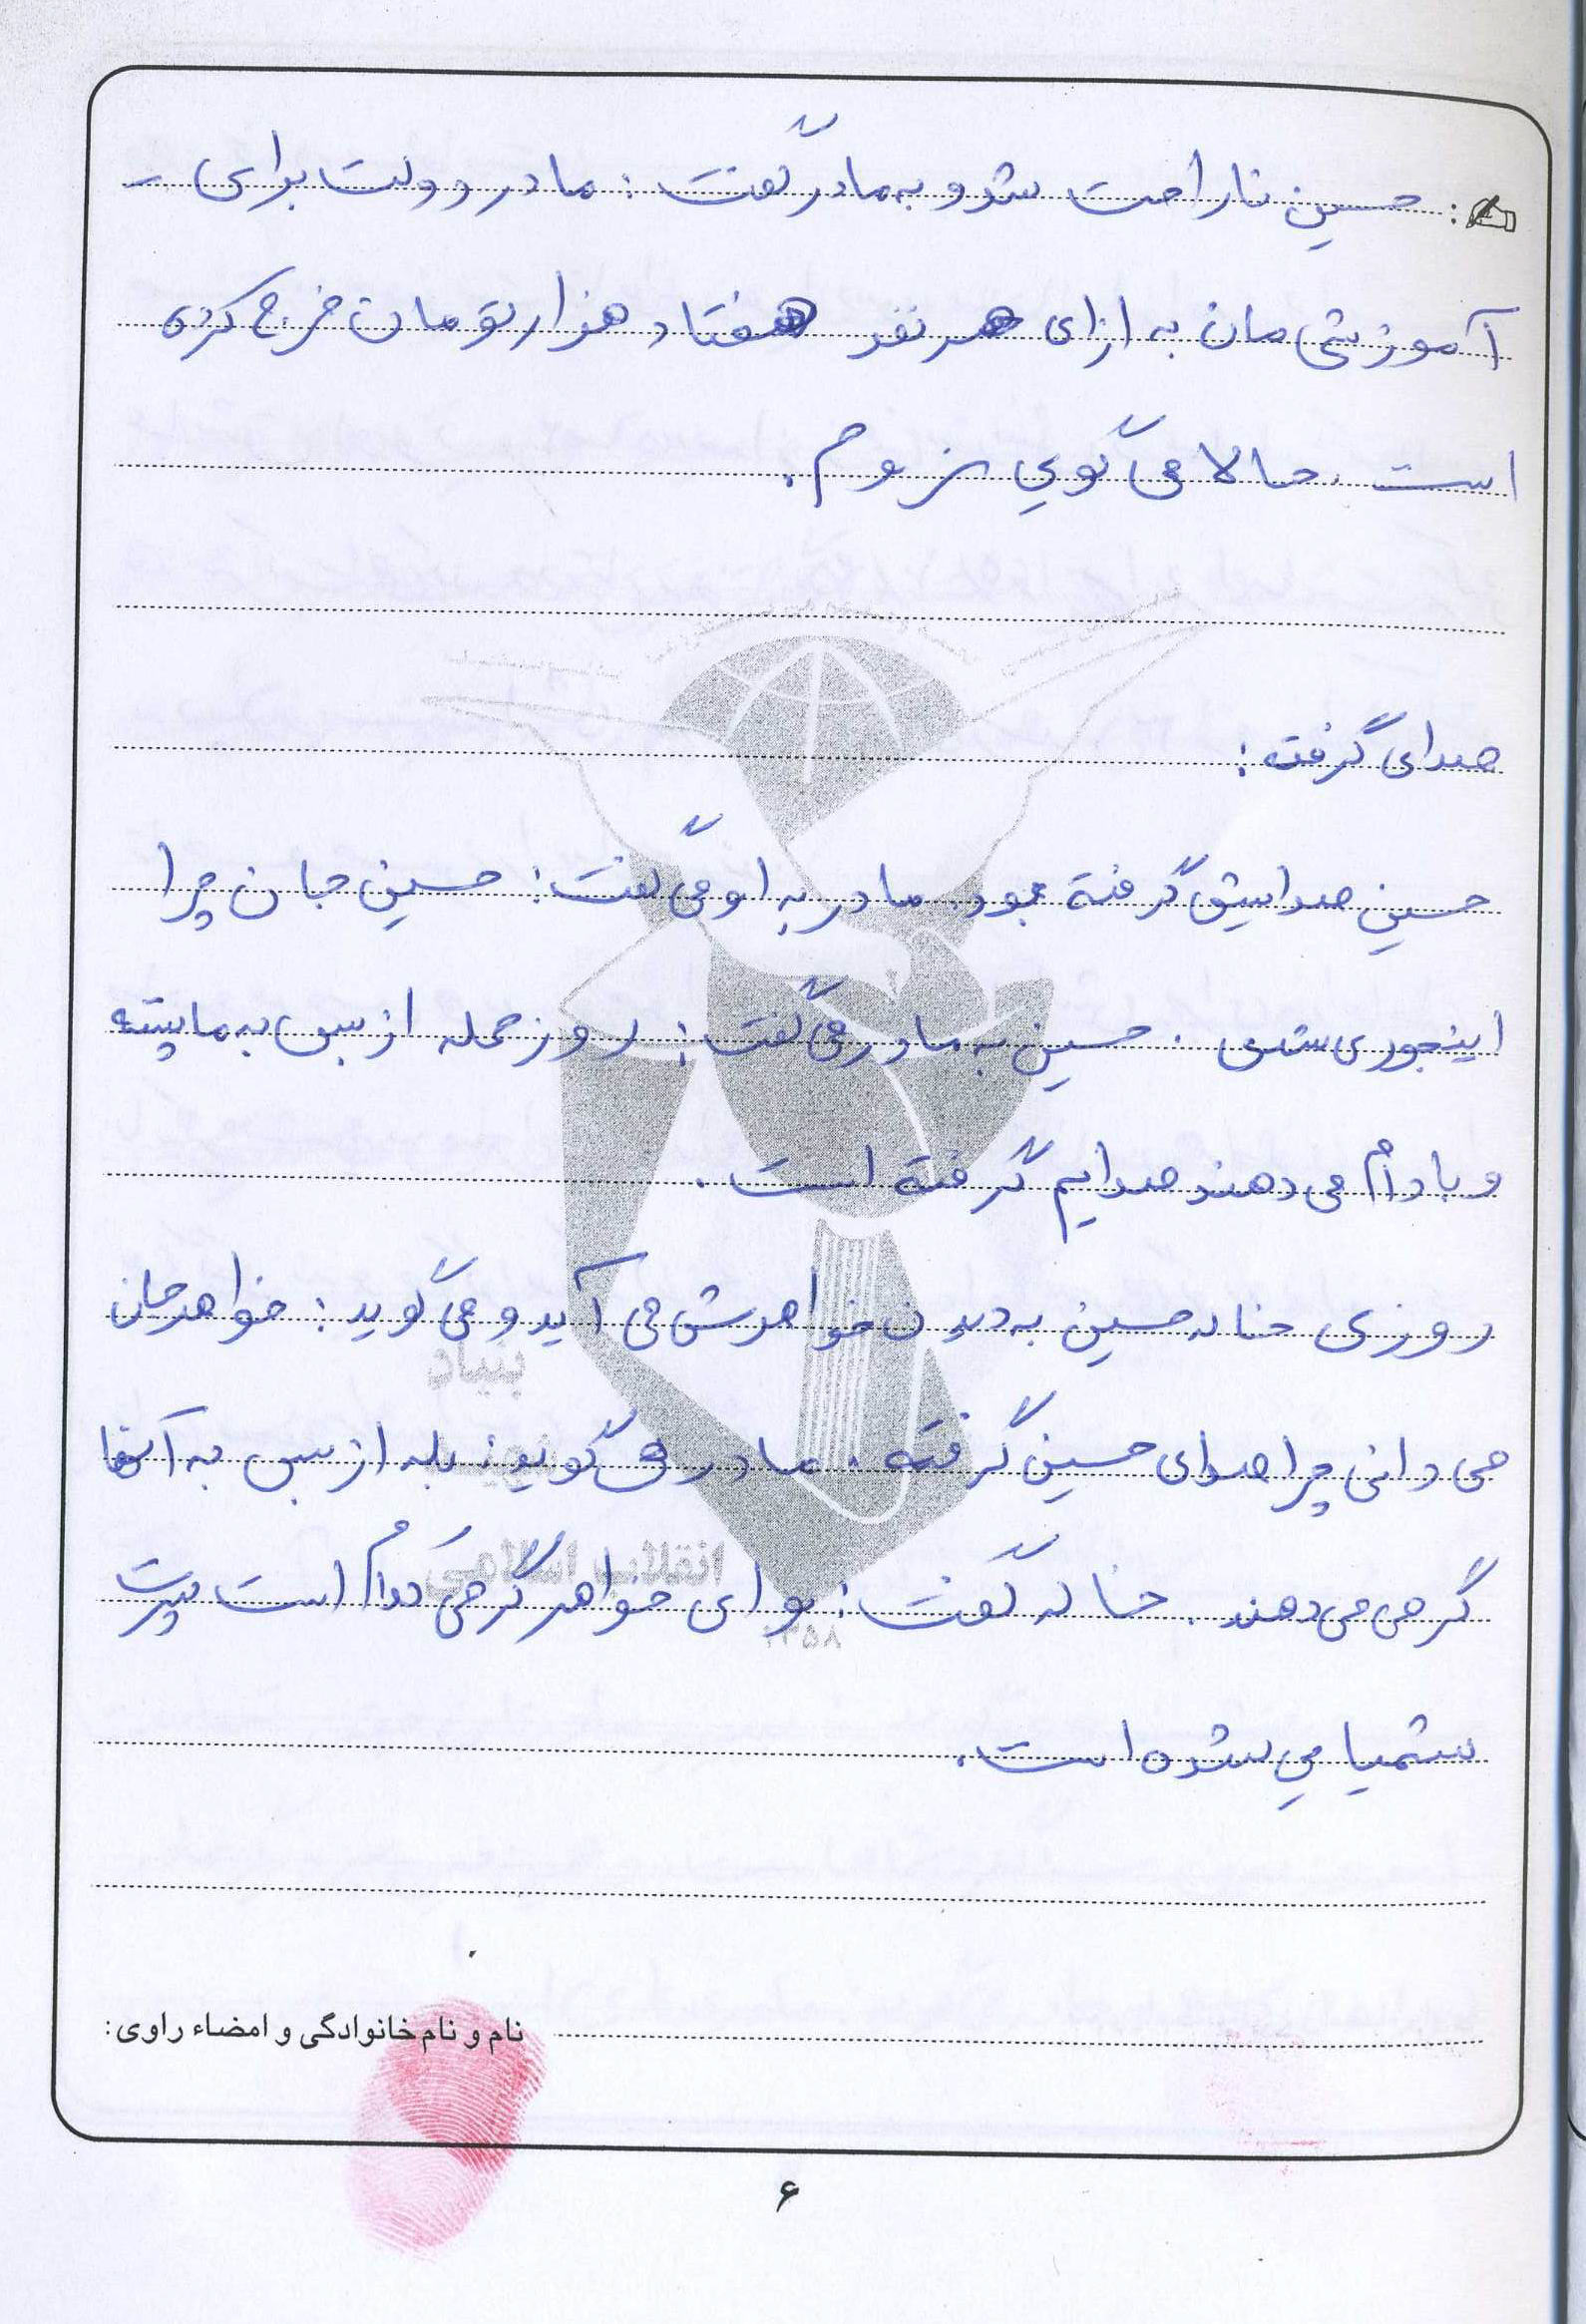 حسین ناراحت شد و به مادر گفت: مادر دولت برای
آموزشی مان به ازای هر نفر هفتاد هزار تومان خرج کرده
است. حالا می گویی نروم.
صدای گرفته:
حسین صدایش گرفته بود. مادر به او می گفت: حسین جان چرا
اینجوری شدی. حسین به مادر می گفت: روز حمله از بس به ما پسته
و بادام می دهند صدایم گرفته است.
روزی خاله حسین به دیدن خواهرش می آید و می گوید: خواهر جان
می دانی چرا صدای حسین گرفته. مادر می گوید: بله از بس به آنها
گرمی می دهند. خاله گفت: ای خواهر گرمی کدام است پسرت
شیمیایی شده است.
بنیاد
انقلاب اسلامی
۱۳۵۸
نام و نام خانوادگی و امضاء راوی:
۶